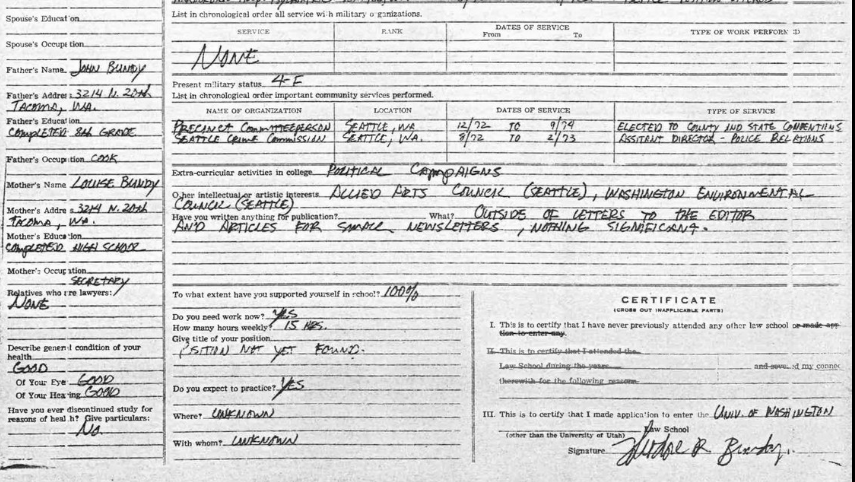 Spouse's Education
Spouse's Occupation
Father's Name JOHN BUNDY
Father's Address 3214 N. 20th
TACOMA, WA.
Father's Education
COMPLETED 8th GRADE
Father's Occupation COOK
Mother's Name LOUISE BUNDY
Mother's Address 3214 N. 20th
TACOMA, WA.
Mother's Education
COMPLETED HIGH SCHOOL
Mother's Occupation
SECRETARY
Relatives who are lawyers:
NONE
Describe general condition of your
health
GOOD
Of Your Eye GOOD
Of Your Hearing GOOD
Have you ever discontinued study for
reasons of health? Give particulars:
No.
List in chronological order all service with military organizations.
SERVICE RANK DATES OF SERVICE TYPE OF WORK PERFORMED
From To
NONE
Present military status 4-F
List in chronological order important community services performed.
NAME OF ORGANIZATION LOCATION DATES OF SERVICE TYPE OF SERVICE
PRECINCT COMMITTEEPERSON SEATTLE, WA 12/72 TO 9/74 ELECTED TO COUNTY AND STATE CONVENTIONS
SEATTLE CRIME COMMISSION SEATTLE, WA. 8/72 TO 2/73 ASSITANT DIRECTOR - POLICE RELATIONS
Extra-curricular activities in college POLITICAL CAMPAIGNS
Other intellectual or artistic interests ALLIED ARTS COUNCIL (SEATTLE), WASHINGTON ENVIRONMENTAL
COUNCIL (SEATTLE)
Have you written anything for publication? What? OUTSIDE OF LETTERS TO THE EDITOR
AND ARTICLES FOR SMALL NEWSLETTERS, NOTHING SIGNIFICANT.
To what extent have you supported yourself in school? 100%
Do you need work now? YES
How many hours weekly? 15 HRS.
Give title of your position
POSITION NOT YET FOUND.
Do you expect to practice? YES
Where? UNKNOWN
With whom? UNKNOWN
CERTIFICATE
(CROSS OUT INAPPLICABLE PARTS)
I. This is to certify that I have never previously attended any other law school or made app
tion to enter any.
II. This is to certify that I attended the
Law School during the years and severed my connec
therewith for the following reasons
III. This is to certify that I made application to enter the UNIV. OF WASHINGTON
Law School
(other than the University of Utah)
Signature Theodore R Bundy